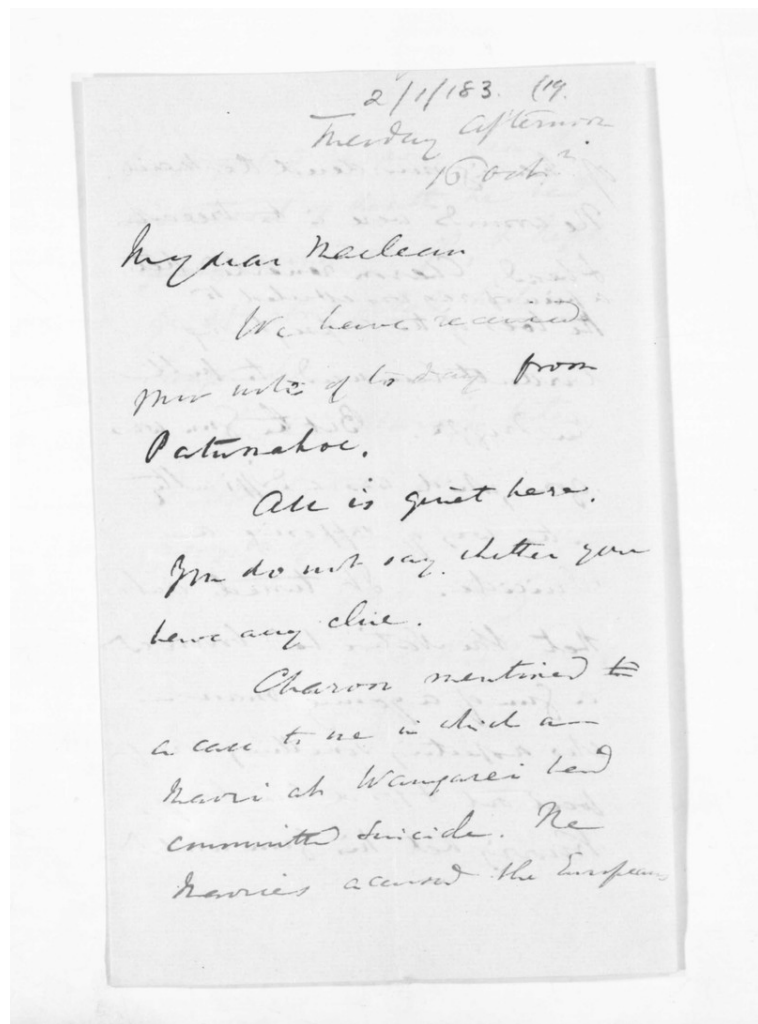 2/1/183. (19.
Tuesday afternoon
10 Oct.r
My dear Maclean
We have received
your note of to day from
Patumahoe.
All is quiet here.
You do not say whether you
have any clue.
mentioned to
a case to me in which a
Maori at Wangarei had
committed suicide. The
Maories accused the Europeans